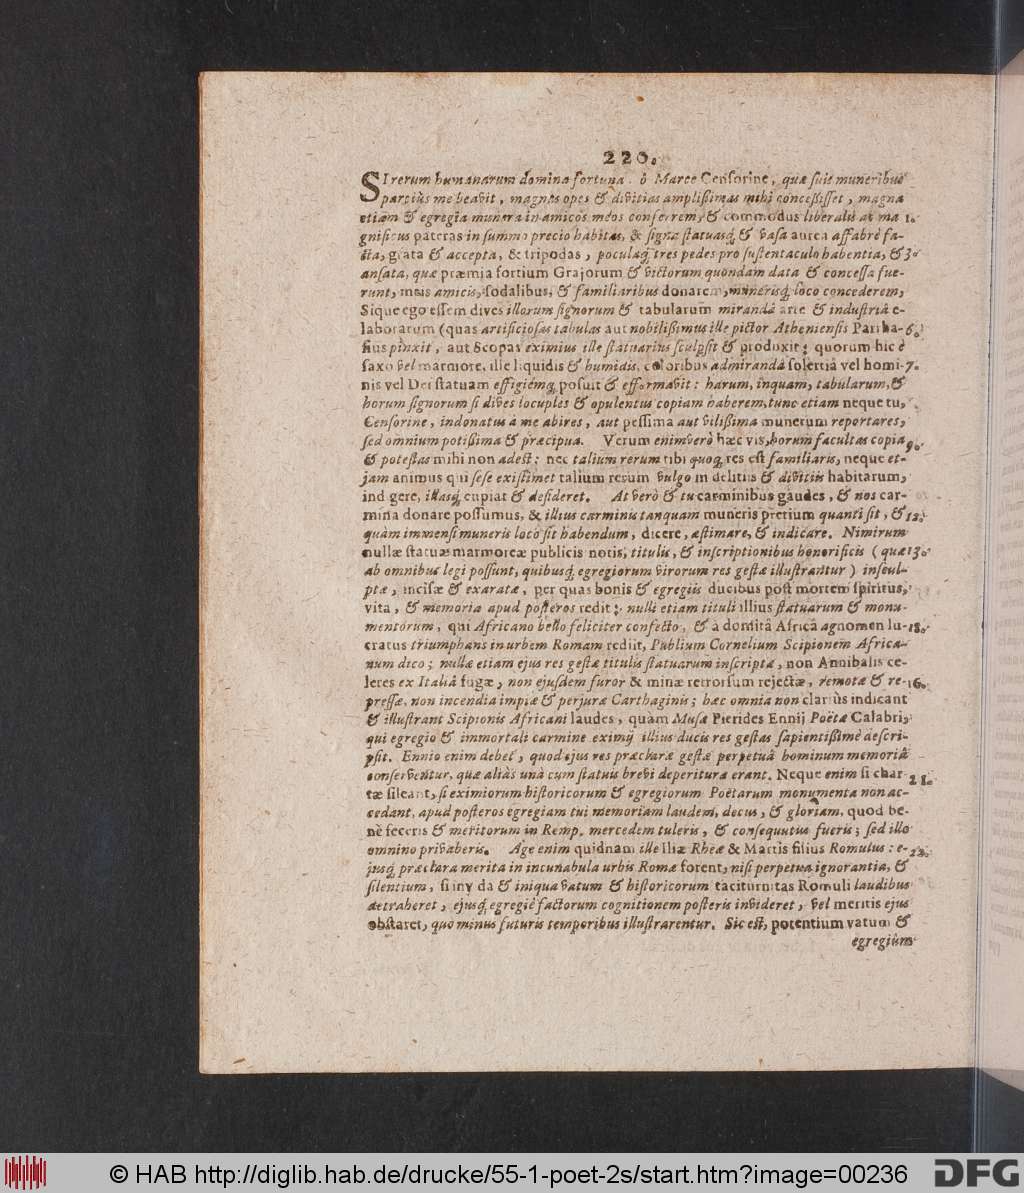 220.
SI rerum humanarum domina fortuna, ô Marce Censorine, quæ suis muneribus
parciùs me beavit, magnas opes & divitias amplißimas mihi concessisset, magna
etiam & egregia munera in amicos meos conferrem, & commodus liberalis ac ma
gnificus pateras in summo precio habitas, & signa statuasq́; & vasa aurea affabrè fa-
cta, grata & accepta, & tripodas, poculaq́; tres pedes pro sustentaculo habentia, & 3.
ansata, quæ præmia fortium Grajorum & victorum quondam data & concessa fue-
runt, meis amicis, sodalibus, & familiaribus donarem, munerisq́; loco concederem,
Sique ego essem dives illorum signorum & tabularum mirandâ arte & industriâ e-
laboratum (quas artificiosas tabulas aut nobilißimus ille pictor Atheniensis Parrha- 6.
sius pinxit, aut Scopas eximius ille statuarius sculpsit & produxit; quorum hic è
saxo vel marmore, ille liquidis & humidis, coloribus admirandâ solertiâ vel homi- 7.
nis vel Dei statuam effigiémq́; posuit & efformavit: harum, inquam, tabularum, &
horum signorum si dives locuples & opulentus copiam haberem, tunc etiam neque tu,
Censorine, indonatus à me abires, aut pessima aut vilißima munerum reportares,
sed omnium potißima & præcipua. Verum enimverò hæc vis, horum facultas copia 9.
& potestas mihi non adest: nec talium rerum tibi quoq́; res est familiaris, neque et-
jam animus qui sese existimet talium rerum vulgo in delitiis & divitiis habitarum,
indigere, illasq́; cupiat & desideret. At verò & tu carminibus gaudes, & nos car-
mina donare possumus, & illius carminis tanquam muneris pretium quanti sit, & 12.
quàm immensi muneris loco sit habendum, dicere, æstimare, & indicare. Nimirum
nullæ statuæ marmoreæ publicis notis, titulis, & inscriptionibus honorificis (quæ 13.
ab omnibus legi possunt, quibusq́; egregiorum virorum res gestæ illustrantur) inscul-
ptæ, incisæ & exaratæ, per quas bonis & egregiis ducibus post mortem spiritus,
vita, & memoria apud posteros redit: nulli etiam tituli illius statuarum & monu-
mentorum, qui Africano bello feliciter confecto, & à domitâ Africâ agnomen lu- 18.
cratus triumphans in urbem Romam rediit, Publium Cornelium Scipionem Africa-
num dico; nullæ etiam ejus res gestæ titulis statuarum inscriptæ, non Annibalis ce-
leres ex Italiâ fugæ, non ejusdem furor & minæ retrorsum rejectæ, remotæ & re- 16.
pressæ, non incendia impiæ & perjuræ Carthaginis; hæc omnia non clariùs indicant
& illustrant Scipionis Africani laudes, quàm Musæ Pierides Ennij Poëtæ Calabri,
qui egregio & immortali carmine eximij illius ducis res gestas sapientißimè descri-
psit. Ennio enim debet, quod ejus res præclaræ gestæ perpetuâ hominum memoriâ
conserventur, quæ aliàs unà cum statuis brevi deperituræ erant. Neque enim si char- 21.
tæ sileant, si eximiorum historicorum & egregiorum Poëtarum monumenta non ac-
cedant, apud posteros egregiam tui memoriam laudem, decus, & gloriam, quod be-
nè feceris & meritorum in Remp. mercedem tuleris, & consequutus fueris; sed illo
omnino privaberis. Age enim quidnam ille Iliæ Rheæ & Martis filius Romulus: e- 22.
jusq́; præclara merita in incunabula urbis Romæ forent, nisi perpetua ignorantia, &
silentium, si invida & iniqua vatum & historicorum taciturnitas Romuli laudibus
detraheret, ejusq́; egregiè factorum cognitionem posteris invideret, vel meritis ejus
obstaret, quo minus futuris temporibus illustrarentur. Sic est, potentium vatum &
egregiûm
© HAB http://diglib.hab.de/drucke/55-1-poet-2s/start.htm?image=00236
DFG